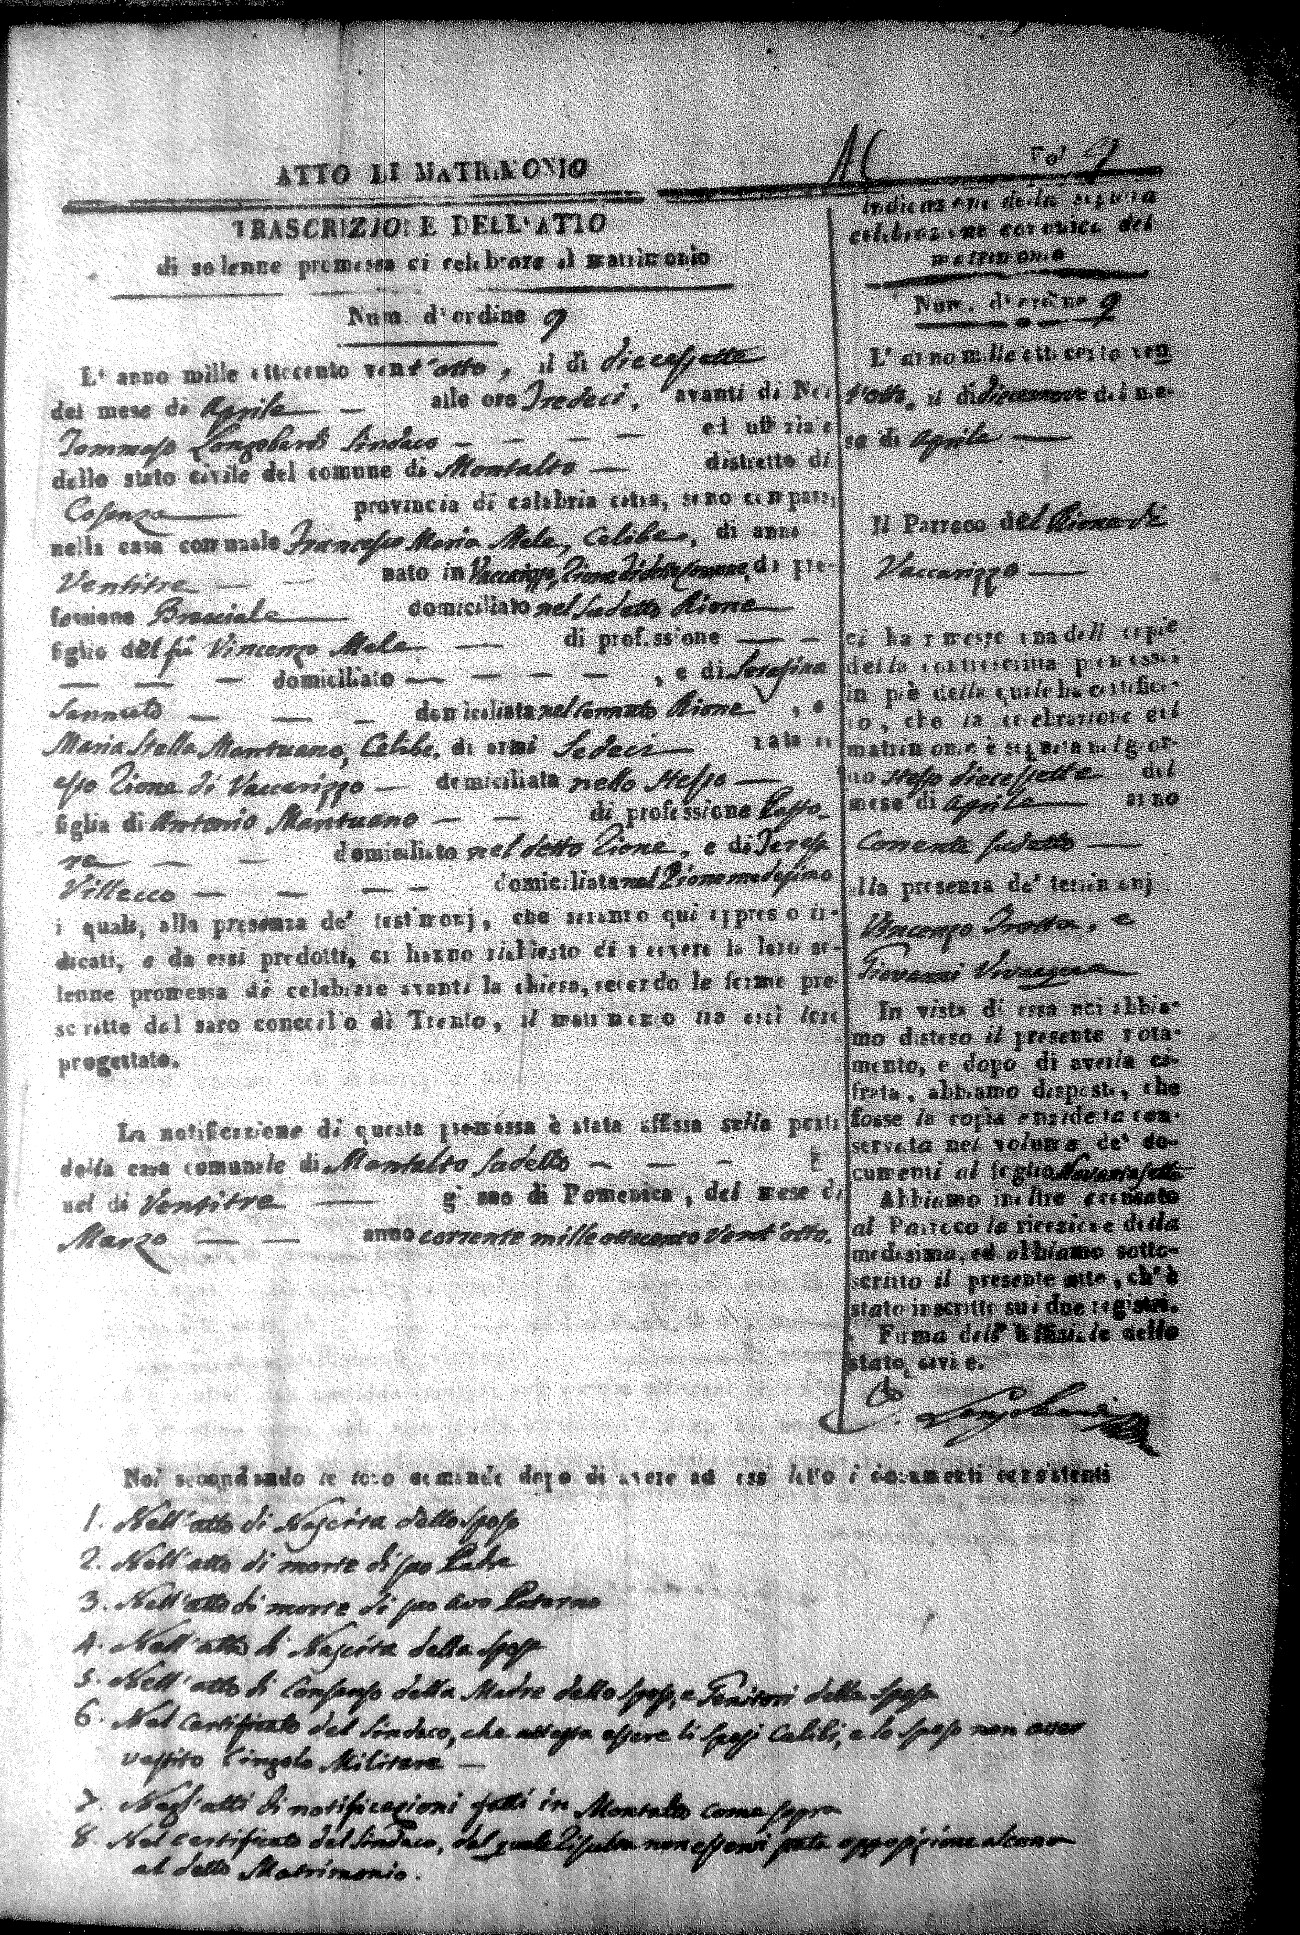 ATTO DI MATRIMONIO
TRASCRIZIONE DELL'ATTO
di solenne promessa di celebrare il matrimonio
Num. d'ordine 9
L'anno mille ottocento vent'otto, il dì diecessette
del mese di Aprile — alle ore Tredeci, avanti di Noi
Tommaso Longobardi Sindaco — — — — ed uffiziale
dello stato civile del comune di Montalto — distretto di
Cosenza — provincia di calabria citra, sono comparsi
nella casa comunale Francesco Maria Mele, Celibe, di anni
Ventitre — — nato in Vaccarizzo, Rione di detto Comune, di pro-
fessione Bracciale — domiciliato nel sudetto Rione —
figlio del fu Vincenzo Mele — di professione — —
— — — domiciliato — — — — —, e di Serafina
Sannuto — — — domiciliata nel cennato Rione, e
Maria Stella Mantuano, Celibe, di anni Sedeci — nata in
esso Rione di Vaccarizzo — domiciliata nello stesso —
figlia di Antonio Mantuano — — di professione Pasto-
re — — — domiciliato nel detto Rione, e di Teresa
Villecco — — — — domiciliata nel Rione medesimo
i quali, alla presenza de' testimonj, che saranno qui appresso in-
dicati, e da essi prodotti, ci hanno richiesto di ricevere la loro so-
lenne promessa di celebrare avanti la chiesa, secondo le forme pre-
scritte dal sacro concilio di Trento, il matrimonio tra essi loro
progettato.
La notificazione di questa promessa è stata affissa sulla porta
della casa comunale di Montalto sudetto — — —
nel dì Ventitre — giorno di Domenica, del mese di
Marzo — — anno corrente mille ottocento vent'otto.
Fol. 9
Indicazione della seguita
celebrazione canonica del
matrimonio
Num. d'ordine 9
L'anno mille ottocento ven
t'otto, il dì diecennove del me-
se di Aprile —
Il Parroco del Rione di
Vaccarizzo —
ci ha rimesso una delle copie
della controscritta promessa
in piè della quale ha certifica-
to, che la celebrazione del
matrimonio è seguita nel gior-
no stesso diecessette del
mese di Aprile — anno
Corrente sudetto —
alla presenza de' testimonj
Vincenzo Trotta, e
Giovanni Vivacqua —
In vista di essa noi abbia-
mo disteso il presente nota-
mento, e dopo di averla ci-
frata, abbiamo disposto, che
fosse la copia anzidetta con-
servata nel volume de' do-
cumenti al foglio Novantasette
Abbiamo inoltre accusato
al Parroco la ricezione della
medesima, ed abbiamo sotto-
scritto il presente atto, ch'è
stato inscritto su i due registri.
Firma dell'uffiziale dello
stato civile.
Longobardi
Noi secondando le loro domande dopo di avere ad essi letto i documenti consistenti
1. Nell'atto di Nascita dello sposo
2. Nell'atto di morte di suo Padre
3. Nell'atto di morte di suo avo Paterno
4. Nell'atto di Nascita della sposa
5. Nell'atto di Consenso della Madre dello sposo, e Genitori della sposa
6. Nel certificato del Sindaco, che attesta essere li sposi Celibi, e lo sposo non aver
vestito Cingolo Militare —
7. Negl'atti di notificazioni fatti in Montalto come sopra
8. Nel certificato del Sindaco, dal quale risulta non essersi fatta opposizione alcuna
al detto Matrimonio.